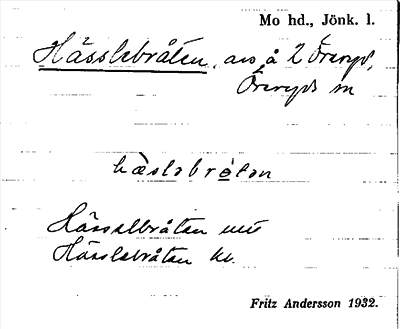 Mo hd., Jönk. l.
Hässlebråten, avs å 2 Öreryd,
Öreryds sn
hæslebrotən
Hässelbråten
Hässlebråten kv.
Fritz Andersson 1932.